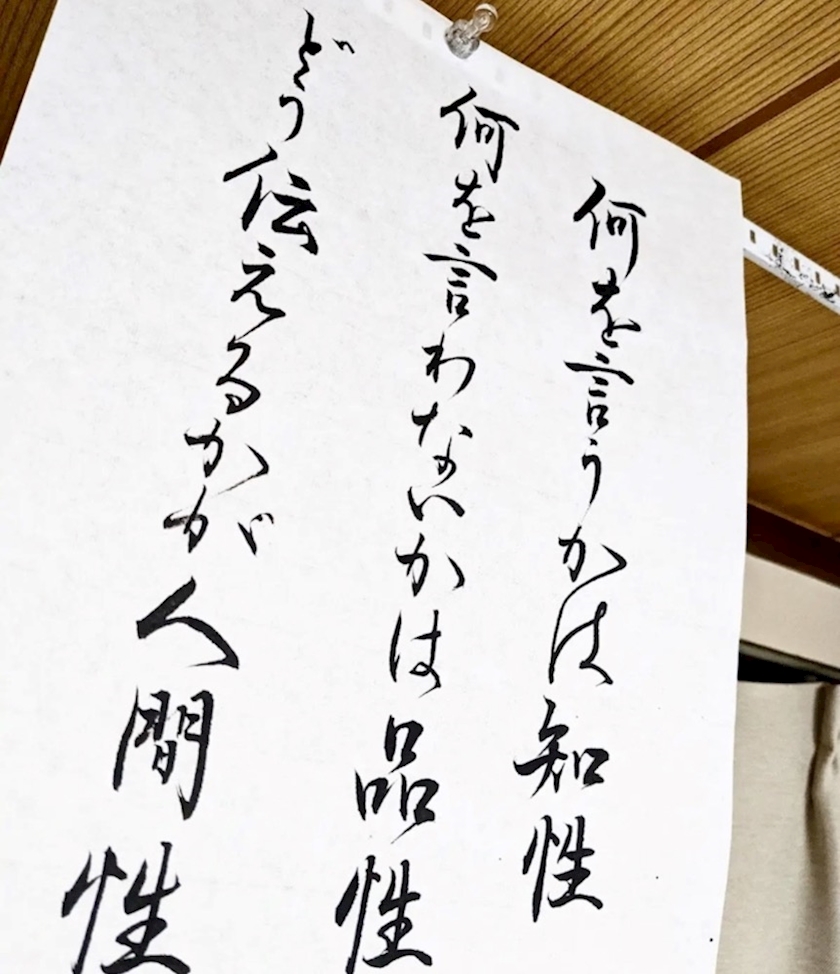 何を言うかは知性
何を言わないかは品性
どう伝えるかが人間性